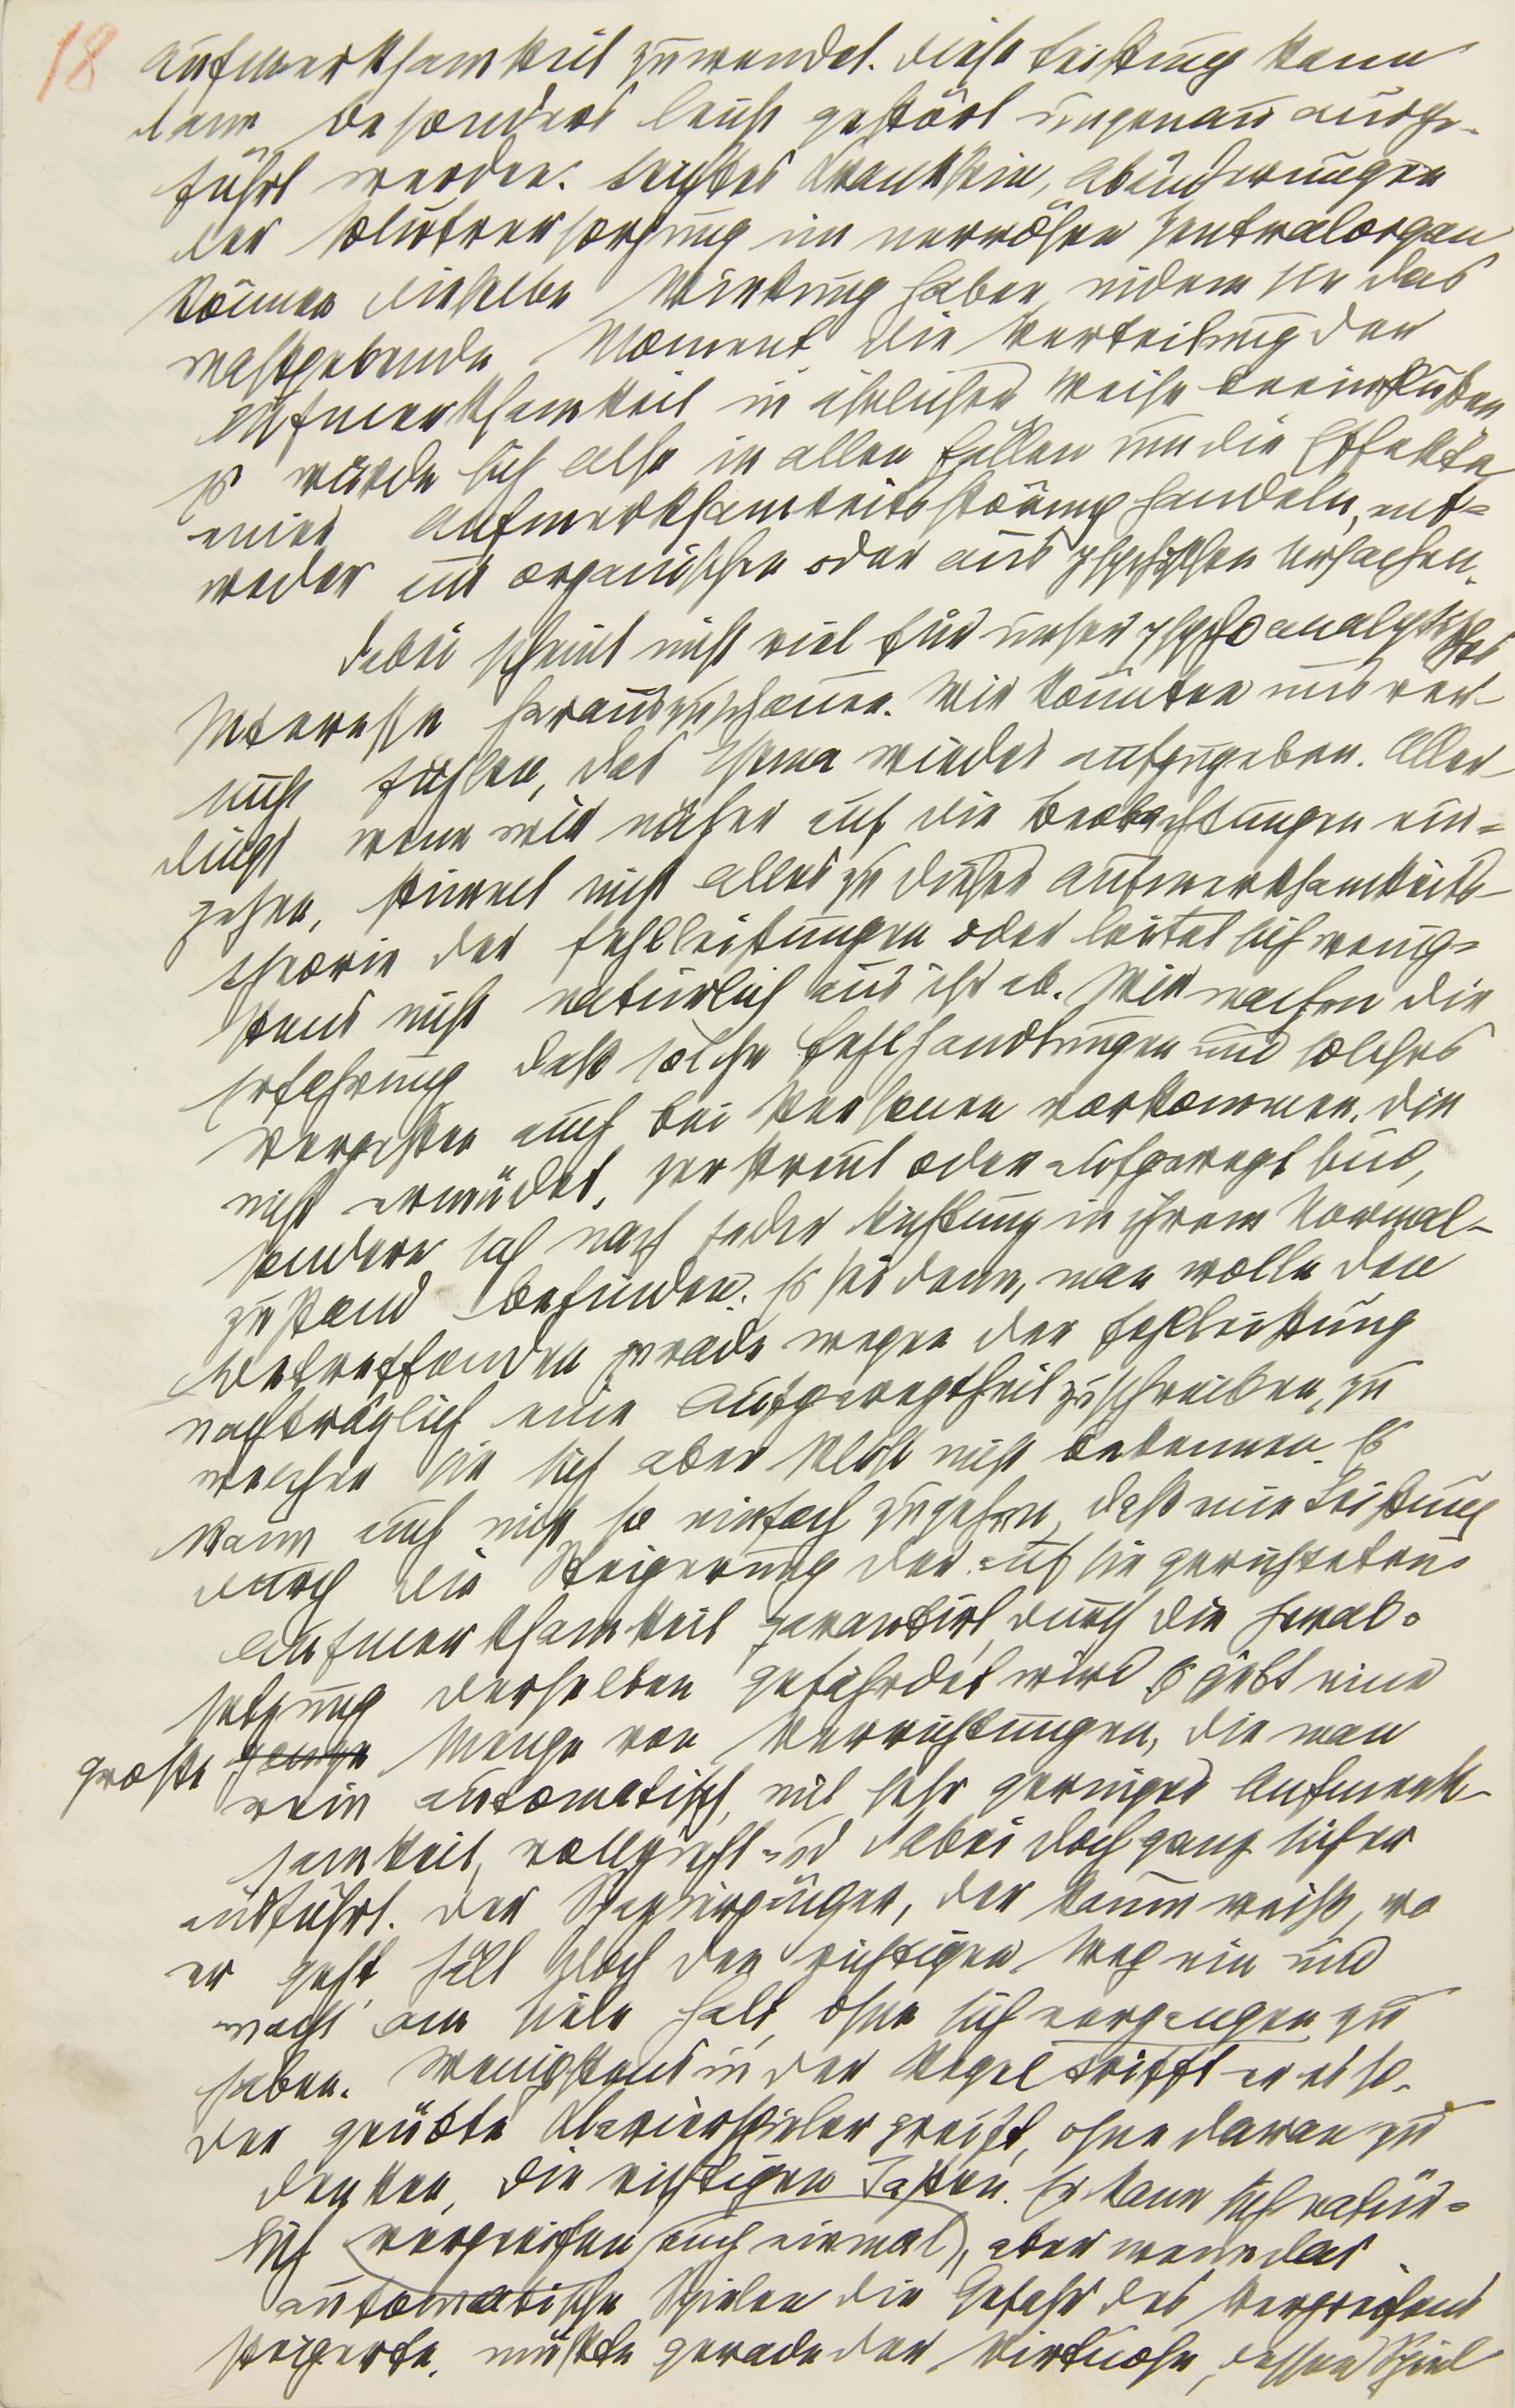 18
Aufmerksamkeit zuwendet. Diese Leistung kann
dann besonders leicht gestört ungenau ausge-
führt werden. Leichtes Kranksein, Abänderungen
der Blutversorgung im nervösen Zentralorgan
können dieselbe Wirkung haben, indem sie das
maßgebende Moment die Verteilung der
Aufmerksamkeit in ähnlicher Weise beeinflußen
Es würde sich also in allen Fällen um die Effekte
einer Aufmerksamkeitsstörung handeln, ent-
weder aus organischen oder aus psychischen Ursachen.
Dabei scheint nicht viel für unser psychoanalytisches
Interesse herauszuschauen. Wir könnten uns ver-
sucht fühlen, das Thema wieder aufzugeben. Aller-
dings wenn wir näher auf die Beobachtungen ein-
gehen, stimmt nicht alles zu dieser Aufmerksamkeits-
theorie der Fehlleistungen oder leitet sich wenig-
stens nicht natürlich aus ihr ab. Wir machen die
Erfahrung daß solche Fehlhandlungen und solches
Vergessen auch bei Personen vorkommen, die
nicht ermüdet, zerstreut oder aufgeregt sind,
sondern sich nach jeder Richtung in ihrem Normal-
zustand befinden. Es sei denn, man wolle den
Betreffenden gerade wegen der Fehlleistung
nachträglich eine Aufgeregtheit zuschreiben, zu
welcher sie sich aber selbst nicht bekennen. Es
kann auch nicht so einfach zugehen, daß eine Leistung
durch die Steigerung der auf sie gerichteten
Aufmerksamkeit garantirt, durch die Herab-
setzung derselben gefährdet wird Es gibt eine
große ganze Menge von Verrichtungen, die man
rein automatisch, mit sehr geringer Aufmerk-
samkeit, vollzieht und dabei doch ganz sicher
ausführt. Der Spaziergänger, der kaum weiß, wo
er geht, hält doch den richtigen Weg ein und
macht am Ziele halt, ohne sich vergangen zu
haben. Wenigstens in der Regel trifft er es so.
Der geübte Klavierspieler greift, ohne daran zu
denken, die richtigen Tasten. Er kann sich natür-
lich vergreifen auch einmal, aber wenn das
automatische Spielen die Gefahr des Vergreifens
steigerte, müßte gerade der Virtuose, dessen Spiel